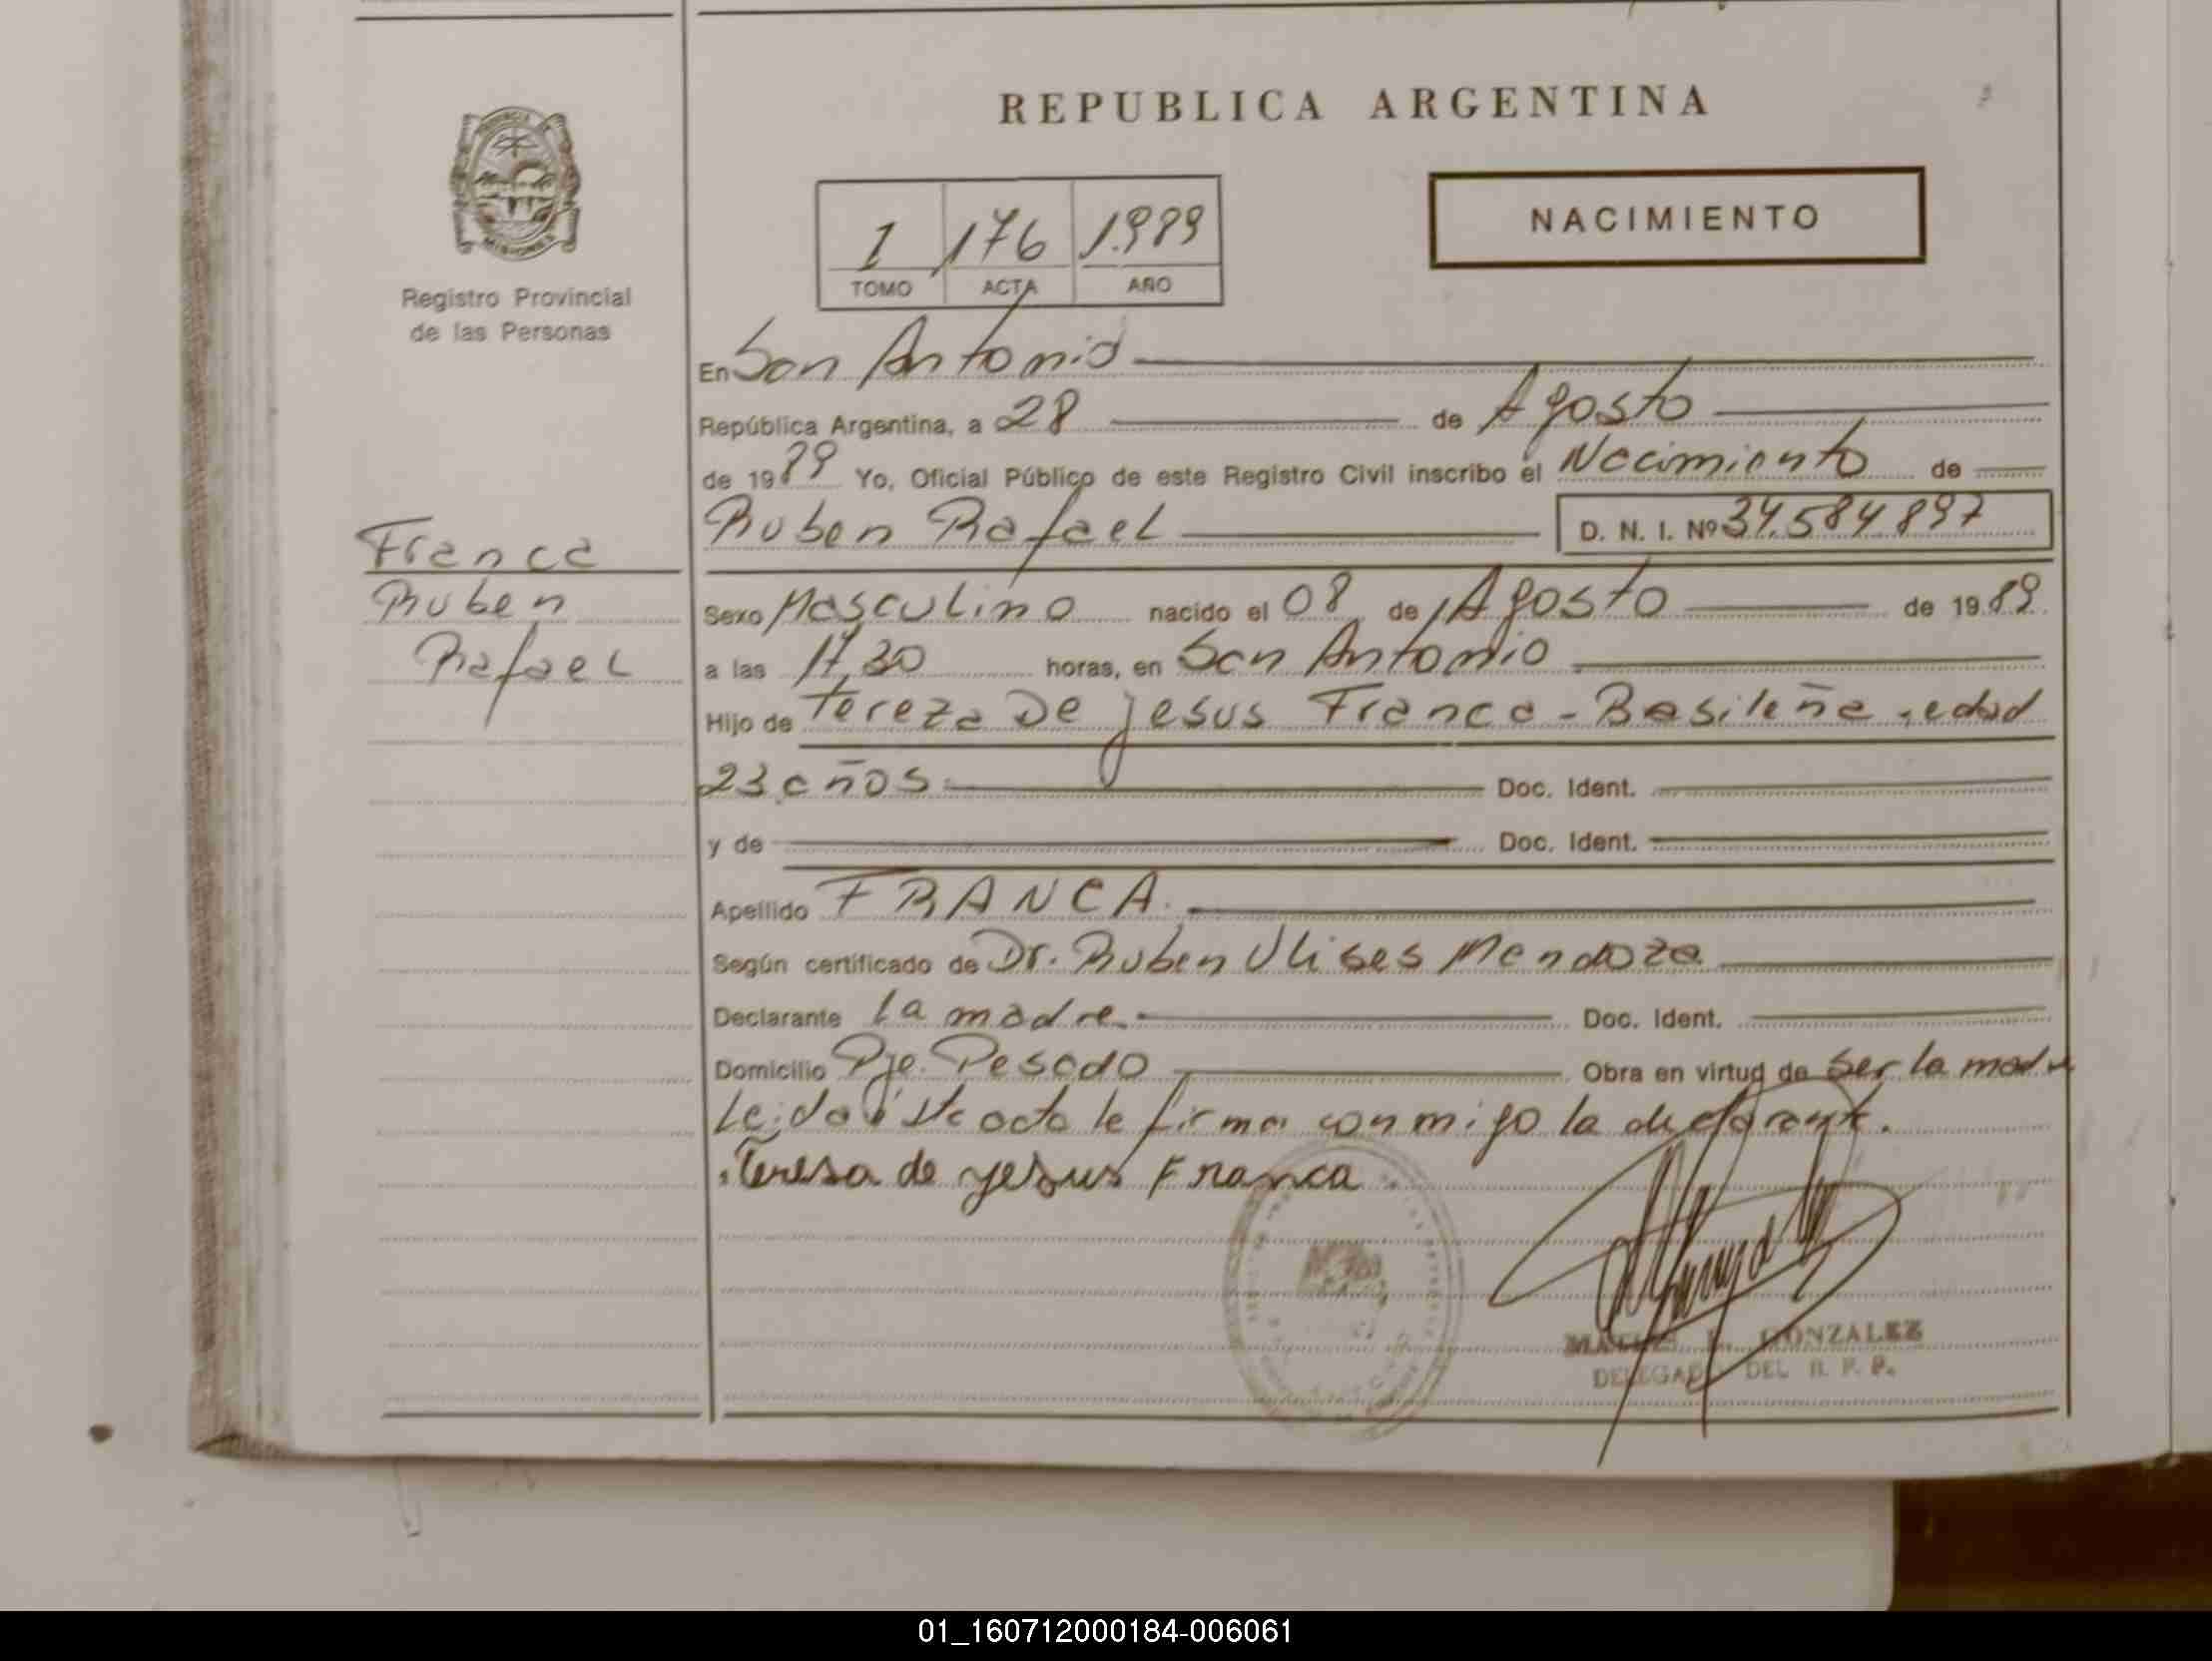 REPUBLICA ARGENTINA
NACIMIENTO
1 176 1.989
TOMO ACTA AÑO
MISIONES
Registro Provincial
de las Personas
En San Antonio
República Argentina, a 28 de Agosto
de 1989 Yo, Oficial Público de este Registro Civil inscribo el Nacimiento de
Ruben Rafael D. N. I. Nº 34.584.897
Franca
Ruben
Rafael
Sexo Masculino nacido el 08 de Agosto de 1989
a las 17,30 horas, en San Antonio
Hijo de Tereza De Jesus Franca - Basileña, edad
23 años Doc. Ident.
y de Doc. Ident.
Apellido FRANCA
Según certificado de Dr. Ruben Ulises Mendoza
Declarante La madre Doc. Ident.
Domicilio Pje. Pesado Obra en virtud de ser la madre
Leida este acta le firma conmigo la declarante.
Teresa de yesus Franca
GONZALEZ
DELEGADO DEL R. P. P.
01_160712000184-006061